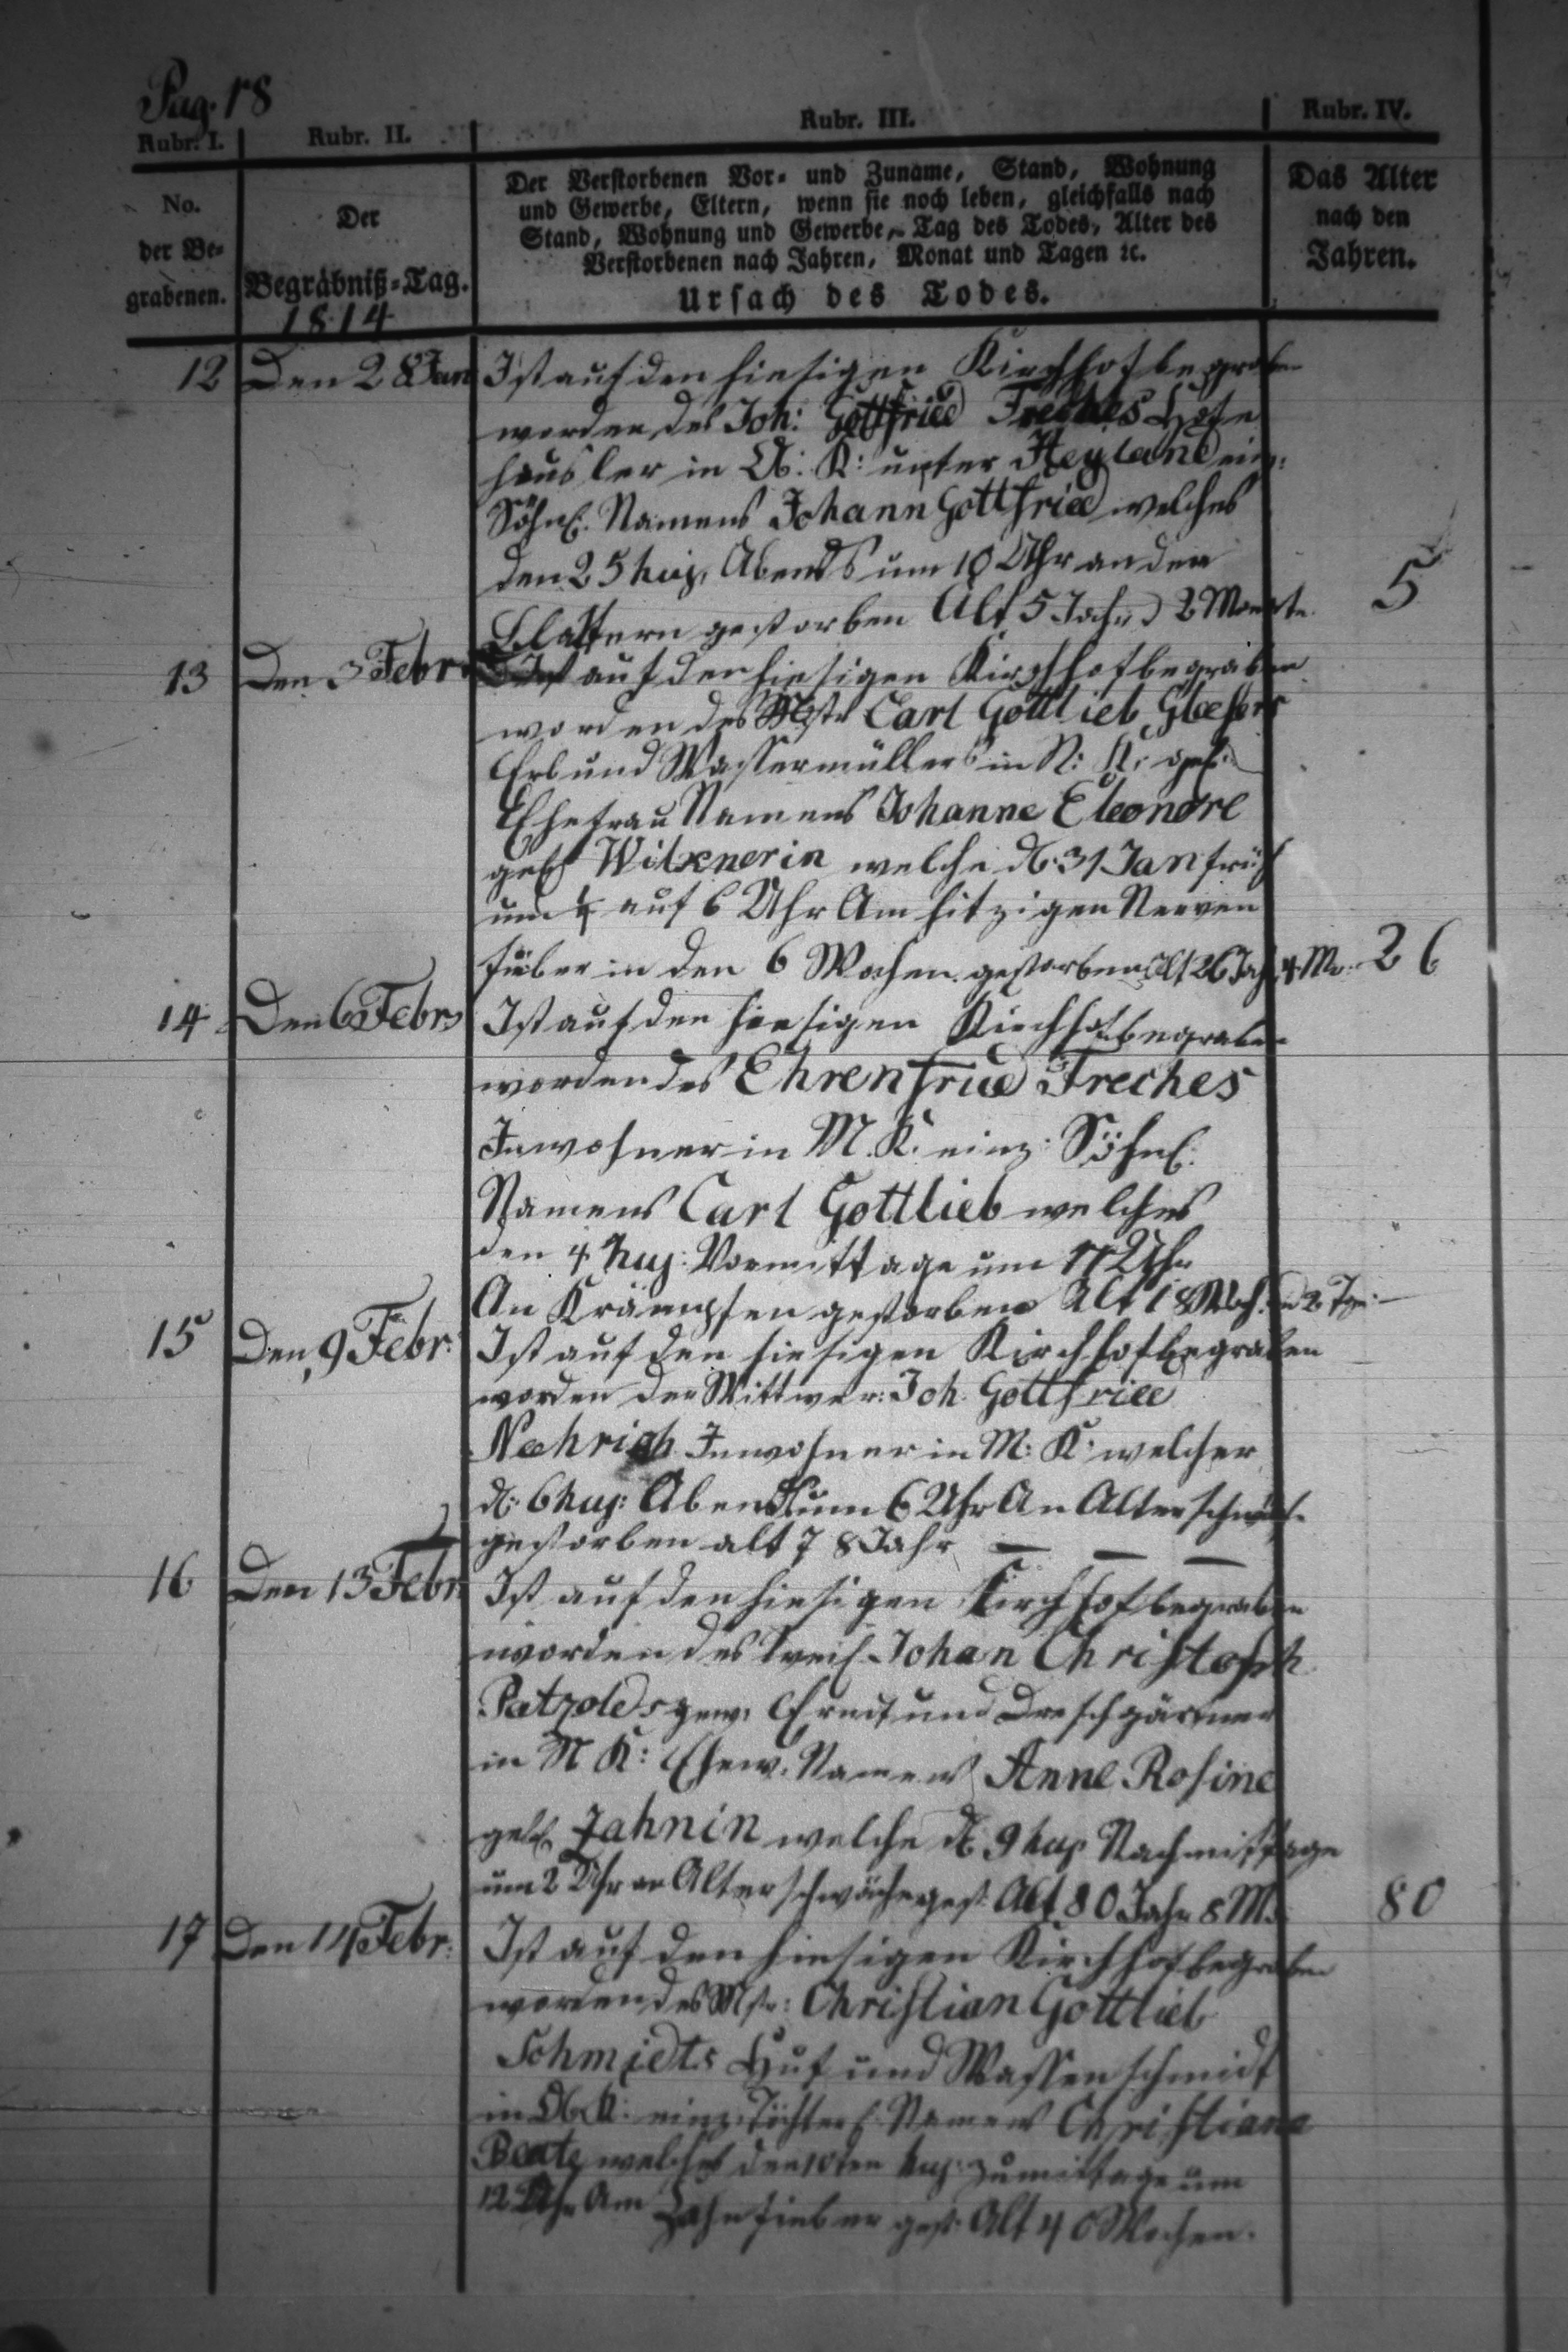 Pag. 18
Rubr. I. Rubr. II. Rubr. III. Rubr. IV.
No. der Be-grabenen.
Der Begräbniß-Tag.
1814
Der Verstorbenen Vor- und Zuname, Stand, Wohnung
und Gewerbe, Eltern, wenn sie noch leben, gleichfalls nach
Stand, Wohnung und Gewerbe, Tag des Todes, Alter des
Verstorbenen nach Jahren, Monat und Tagen ꝛc.
Ursach des Todes.
Das Alter nach den Jahren.
12 Den 28 Jan Ist auf den hiesigen Kirchhof begraben
worden des Joh: Gottfried Freches Hofe
häusler in Ob: K: unter Heyland einz:
Söhnl. Namens Johann Gottfried welches
den 25 huj. Abends um 10 Uhr an den
Blattern gestorben Alt 5 Jahr 2 Monate 5
13 Den 3 Febr Ist auf den hiesigen Kirchhof begraben
worden des Mstr Carl Gottlieb Glaesers
Erb und Wassermüllers in N: K: gel.
Ehefrau Namens Johanne Eleonore
geb. Wilxnerin welche d: 31 Jan früh
um auf 6 Uhr Am hitzigen Nerven
fieber in den 6 Wochen gestorben Alt 26 Jah. 4 Mo. 26
14 Den 6 Febr Ist auf den hiesigen Kirchhof begraben
worden des Ehrenfried Freches
Inwohner in M. K. einz: Söhnl:
Namens Carl Gottlieb welches
den 4 huj: Vormittage um 11 Uhr
An Krämpfen gestorben Alt 18 Woch. 2 Tge:
15 Den 9 Febr: Ist auf den hiesigen Kirchhof begraben
worden der Wittwer: Joh. Gottfried
Nachrigh Inwohner in M: K: welcher
d: 6 huj: Abends um 6 Uhr An Alterschwäche
gestorben alt 78 Jahr — — —
16 Den 13 Febr Ist auf den hiesigen Kirchhof begraben
worden des Johan Christoph
Patzolds gew. und Dreschgärtner
in N K: Ehew. Namens Anne Rosine
geb. Jahnin welche d. 9 huj Nachmittage
um 2 Uhr an Alterschwäche gest. Alt 80 Jahr 8 M. 80
17 Den 14 Febr: Ist auf den hiesigen Kirchhof begraben
worden des Mstr: Christian Gottlieb
Schmidts Huf und Waffenschmidt
in Ob K: einz. Töchterl. Namens Christiana
Beate welches den 10ten huj: zumittage um
12 Uhr Am Zahnfieber gest. Alt 40 Wochen.